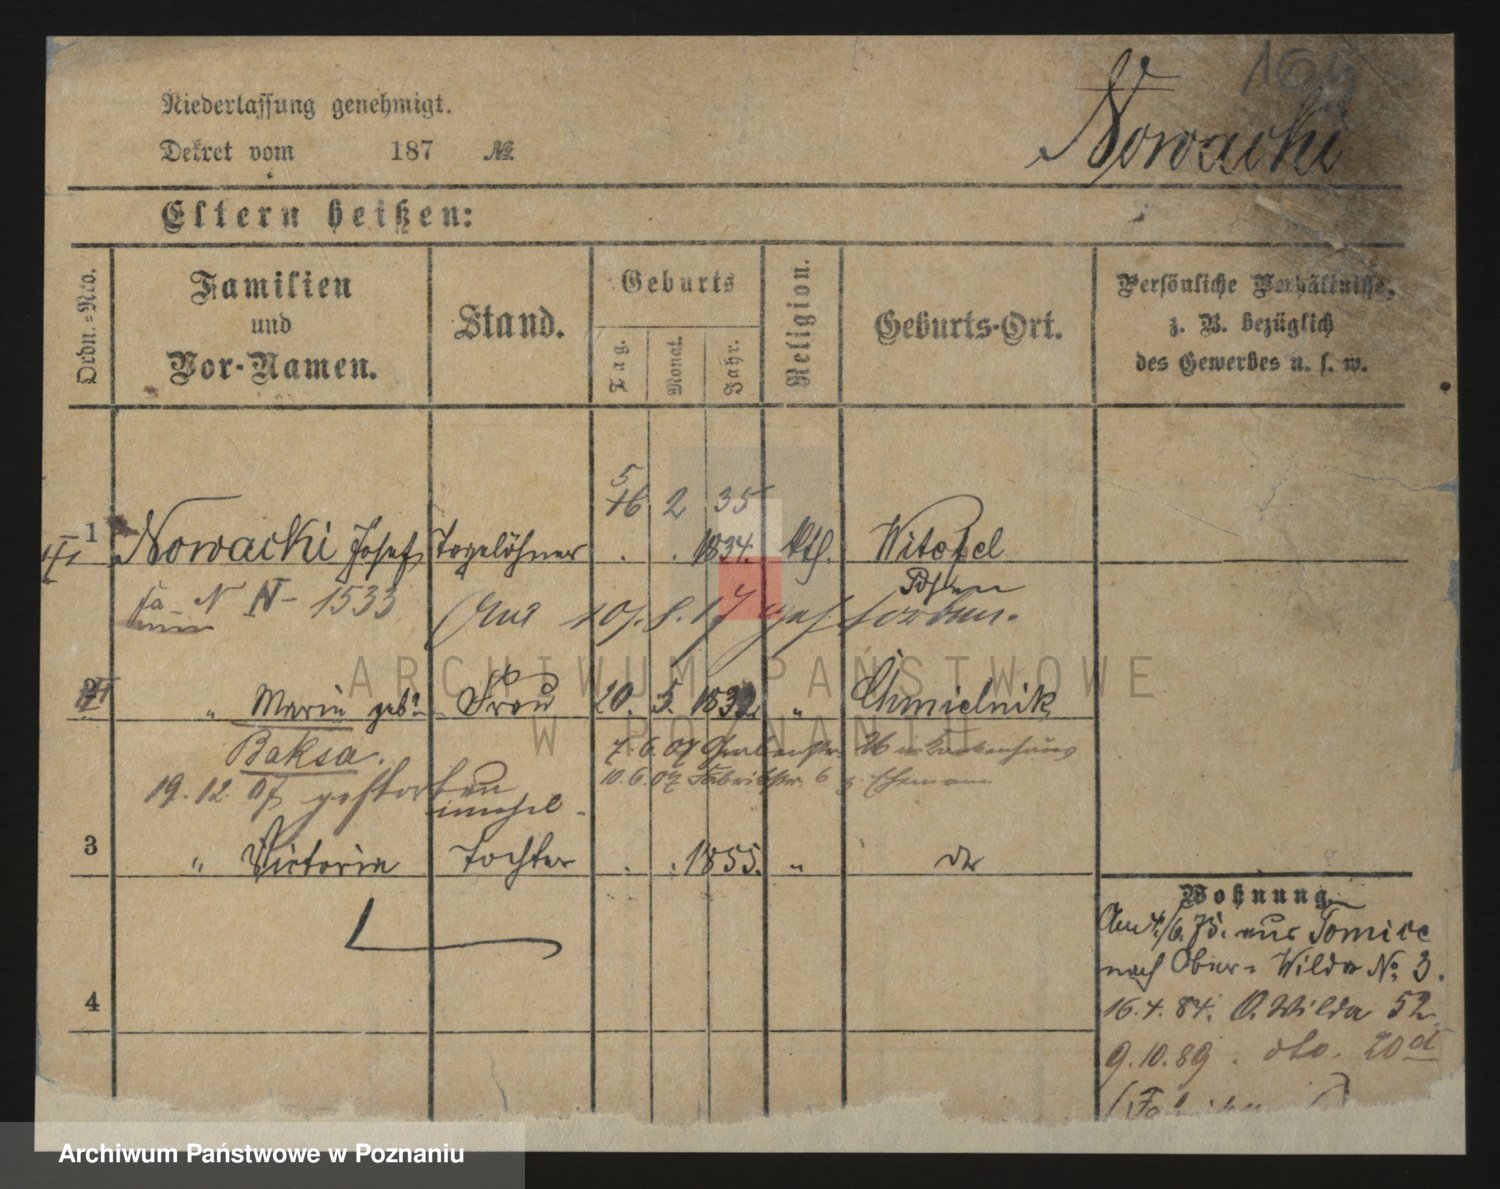 Niederlassung genehmigt.
Dekret vom 187 №
Nowacki
Eltern heißen:
Ordn.-Nro.
Familien
und
Vor-Namen.
Stand.
Geburts
Tag.
Monat.
Jahr.
Religion.
Geburts-Ort.
Persönliche Verhältnisse,
z. B. bezüglich
des Gewerbes u. s. w.
5
16 2 35
1 Nowacki Josef Tagelöhner . . 1834. kth. Witobel
Posen
N- 1533
gestorben.
2 " Maria geb. Frau 20. 5. 1832. " Chmielnik
Baksa.
7.6.07 Grabenstr. 26 Krankenhaus
10.6.07 Fabrikstr. 6 z. Ehemann
19. 12. 07 gestorben
3 " Victoria Tochter . . 1855. " do
4
Wohnung
aus Tomice
nach Ober-Wilda No. 3.
16.4.84. O. Wilda 52
9.10.89. dto. 20d
ARCHIWUM PAŃSTWOWE
W POZNANIU
Archiwum Państwowe w Poznaniu